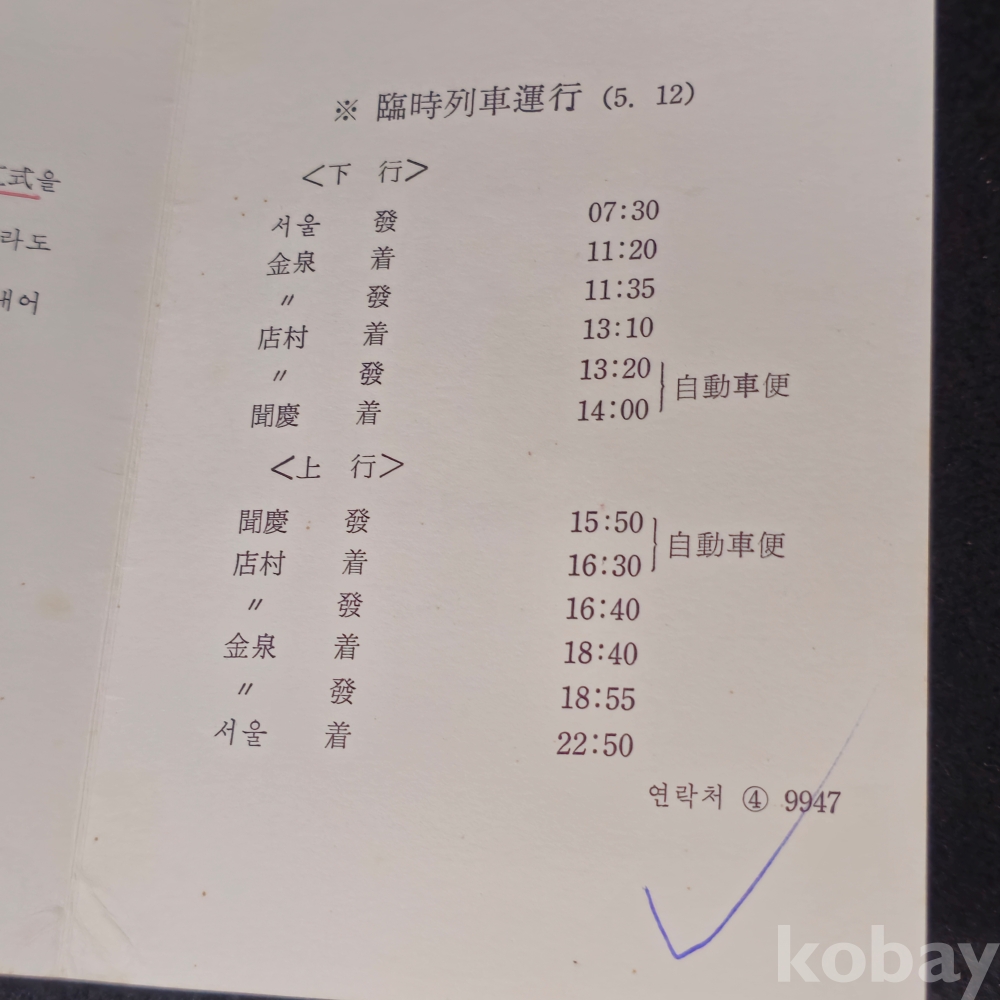 式을
라도
내어
※ 臨時列車運行 (5. 12)
<下 行>
서울 發 07:30
金泉 着 11:20
〃 發 11:35
店村 着 13:10
〃 發 13:20
聞慶 着 14:00
自動車便
<上 行>
聞慶 發 15:50
店村 着 16:30
自動車便
〃 發 16:40
金泉 着 18:40
〃 發 18:55
서울 着 22:50
연락처 ④ 9947
kobay